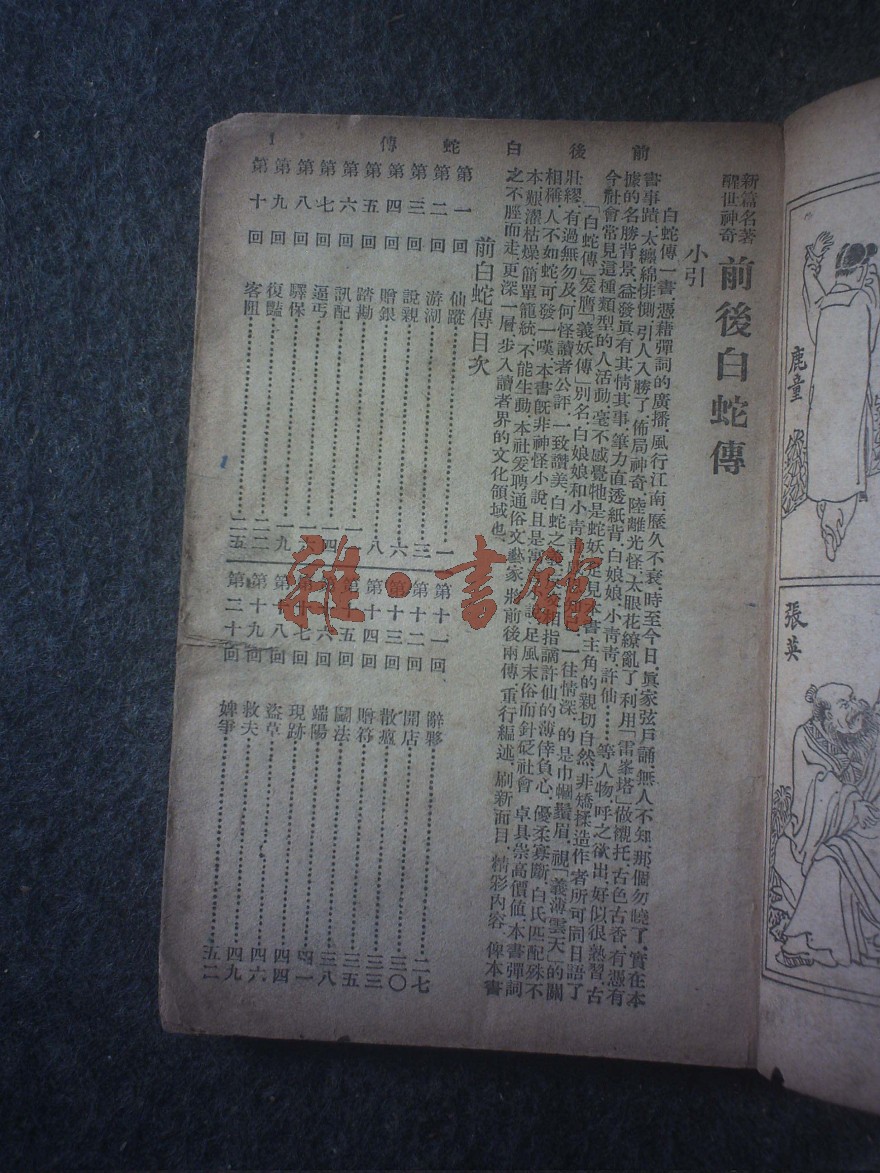 前後白蛇傳
1
新篇名著
醒世神奇
前後白蛇傳
小引
白蛇傳一書、憑藉彈詞的廣播、風行江南、歷久不衰、時至今日、眞家弦戶誦、無人不知、那個勿曉了、實在本
書事蹟、太纏綿悱惻、引人入勝了、佈局神奇、陸離光怪、太眼花繚亂了、利用「雷峯塔」做襯托、古色古香、有憑有
據的名勝背景、益發眞有其情其事、筆力直透紙背、白娘娘、小靑靑、許仙……等人物、呼之欲出、好似很熟習、古
今社會常見這種類型的人活動、毫不感覺牠是蛇妖、足見本書主角的親切自然、非矯揉造作者所可同日語了
「白蛇傳」爰應「義妖傳」別名、白娘娘和小靑靑、一往情深、的是巾幗鬚眉、視「義薄雲天」的關
壯繆、有過無勿及、何怪讀者公評、一致讚美、白蛇之義、指謫許仙的薄倖負心、優柔寡斷、白氏匹配殊不
相稱、人不如蛇、可發一嘆、本書旣非神怪小說、且是寓、足風末俗、而針砭社會、卓具崇高價值、本書彈詞
本艱澀枯燥、簡單籠統、不能生動、本社爰聘通俗文藝家、將前後兩傳、重行編述、刷新面目、精彩內容、俾本書
之不脛而走、更深一層、步入讀者界的文化領域也、
前白蛇傳目次
第一回 仙蹤……一
第二回 游湖……三
第三回 說親……六
第四回 贈銀……八
第五回 踏勘……一
第六回 訊配……一四
第七回 逼丐……一
第八回 驛保……一九
第九回 復豔……二二
第十回 客阻……二五
第十一回 辭夥……二七
第十二回 開店……三〇
第十三回 散瘟……三三
第十四回 贈符……三五
第十五回 鬭法……三八
第十六回 端陽……四一
第十七回 現跡……四四
第十八回 盜草……四六
第十九回 救夫……四九
第二十回 婢爭……五二
鹿童
張英
雜·書館